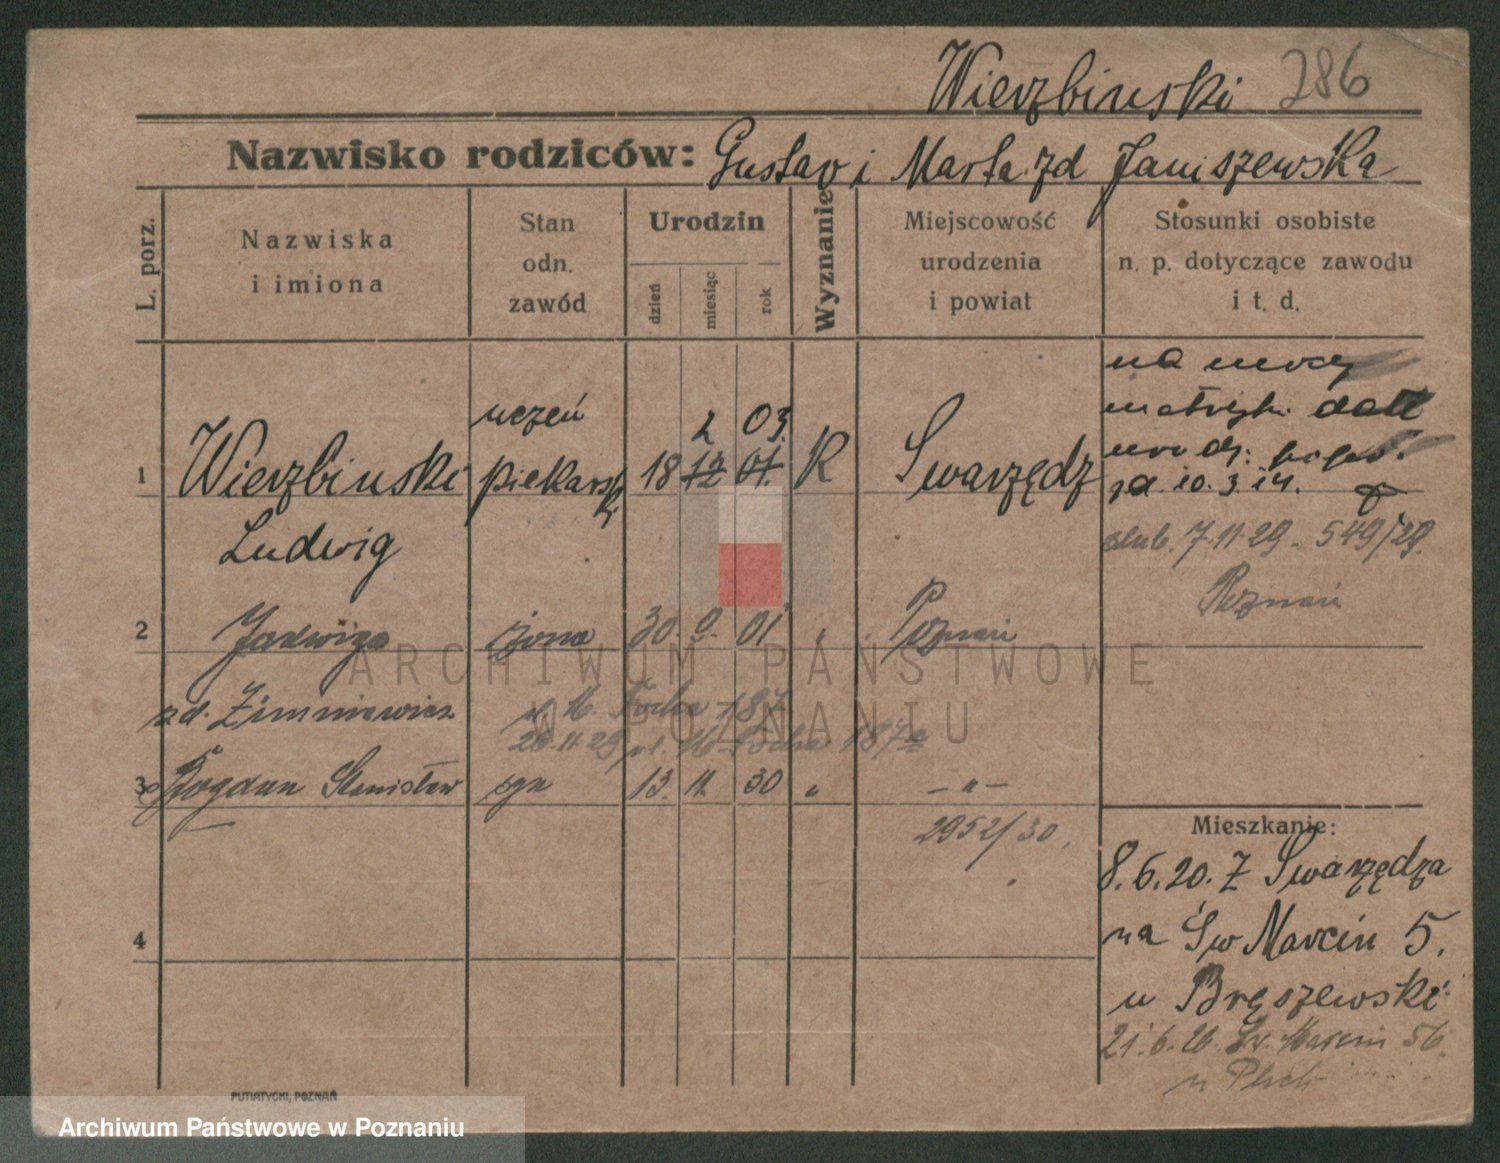 Wierzbinski 286
Nazwisko rodziców: Gustav i Marta zd Janiszewska
L. porz.
Nazwiska
i imiona
Stan
odn.
zawód
Urodzin
dzień
miesiąc
rok
Wyznanie
Miejscowość
urodzenia
i powiat
Stosunki osobiste
n. p. dotyczące zawodu
i t. d.
1 Wierzbinski
Ludwig
uczeń
piekarsk.
2 03.
18 12 01.
K
Swarzędz
na mocy
metryki dat
urodz. popr.
zd. 10.3.14.
ślub. 7.11.29. 549/29.
Poznań
2 Jadwiga żona 30. 9. 01. " Poznań
zd. Zimniewicz
3 Bogdan Stanisław syn 13. 11. 30 " – " –
2952/30.
4
Mieszkanie:
8.6.20. Z Swarzędza
na Św Marcin 5.
u Bręszewski
21.6.26. Św. Marcin 56.
u
PUTIATYCKI, POZNAŃ
ARCHIWUM PAŃSTWOWE
W POZNANIU
Archiwum Państwowe w Poznaniu